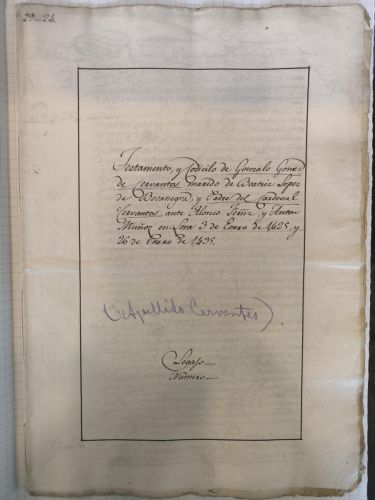 23-24.
Testamento, y Codicilo de Gonzalo Gomez
de Cervantes marido de Beatriz Lopez
de Bocanegra, y Padre del Cardenal
Cervantes ante Alonso Frnz, y Anton
Muñoz en Lora 3 de Enero de 1425, y
26 de Enero de 1435.
(Apellido Cervantes).
Legajo
Numero